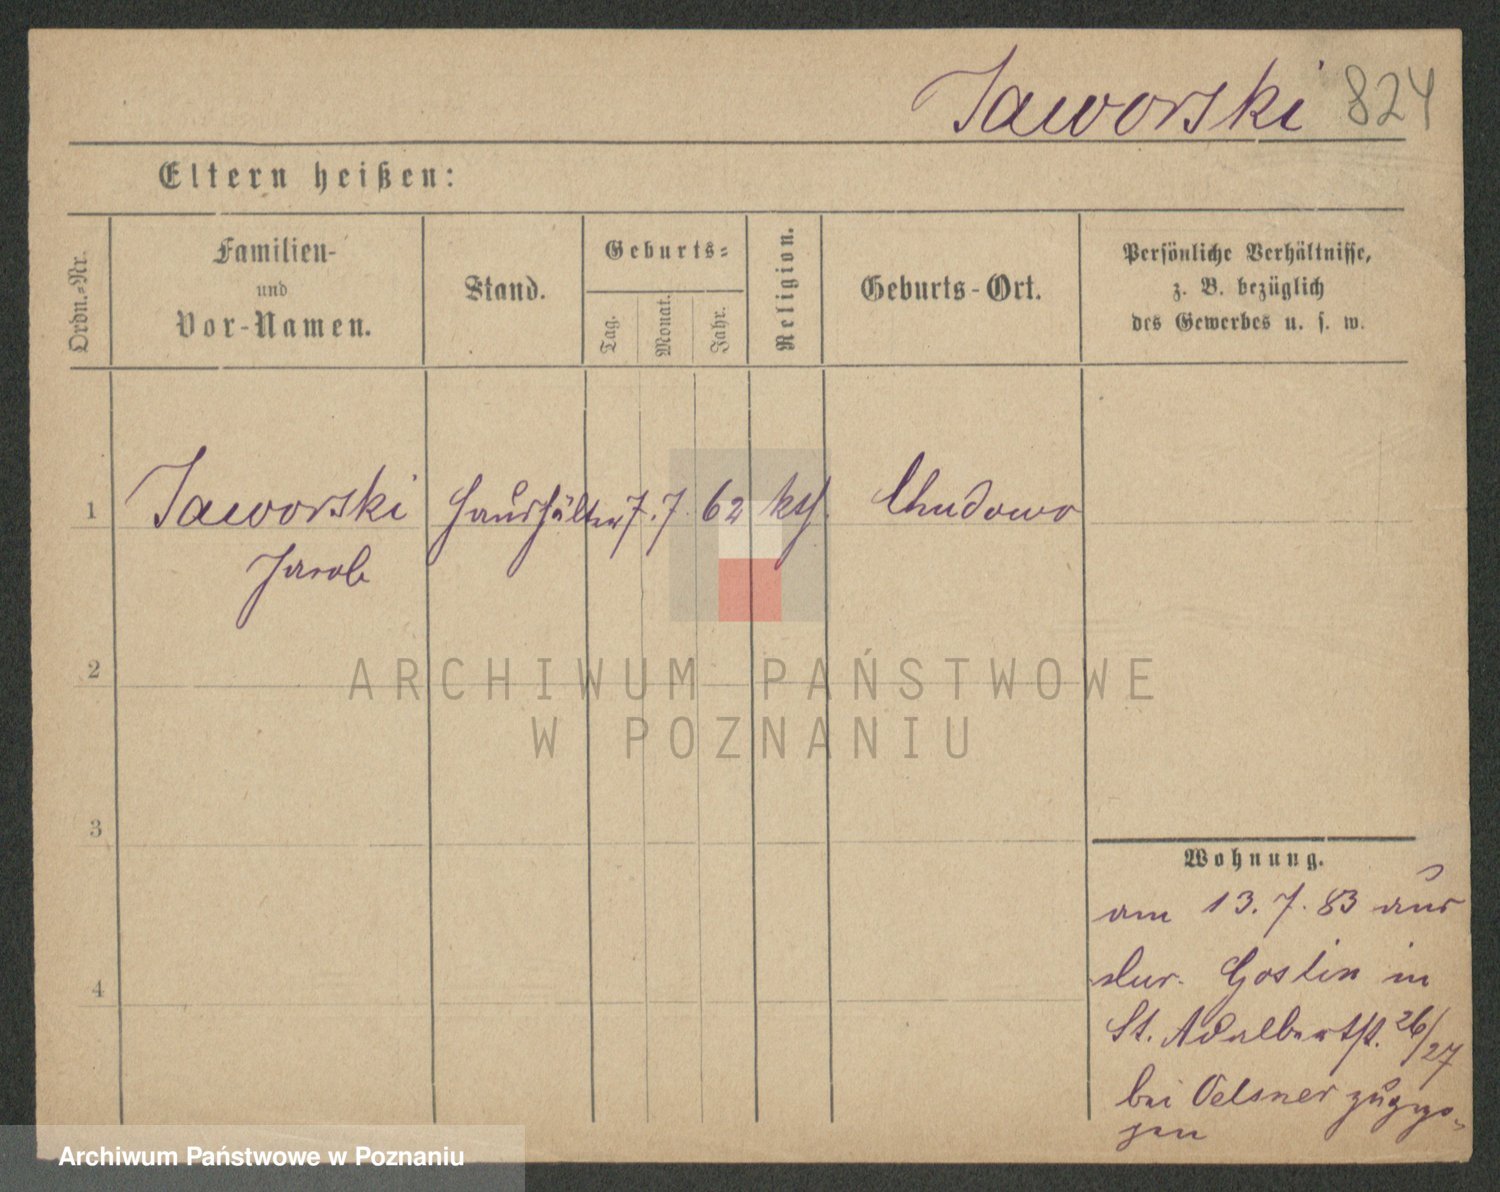 Jaworski 824
Eltern heißen:
Ordn.-Nr.
Familien-
und
Vor-Namen.
Stand.
Geburts-
Tag.
Monat.
Jahr.
Religion.
Geburts-Ort.
Persönliche Verhältnisse,
z. B. bezüglich
des Gewerbes u. s. w.
1 Jaworski Haushälter 7. 7. 62 kth. Chudowo
Jacob
2
3
4
Wohnung.
am 13. 7. 83 aus
Goslin in
St. Adalbertst. 26/27
bei Oelsner zugezo-
gen
ARCHIWUM PAŃSTWOWE
W POZNANIU
Archiwum Państwowe w Poznaniu